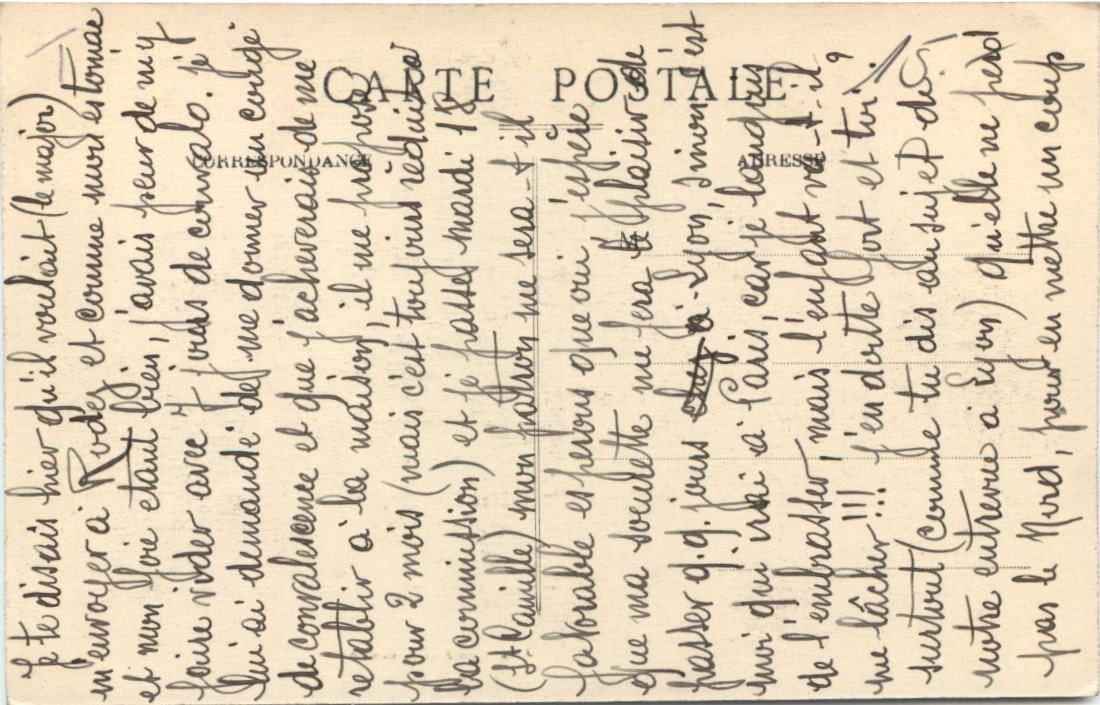 CARTE POSTALE
CORRESPONDANCE
ADRESSE
Je te disais hier qu'il voulait (le major)
m'envoyer à Rodez et comme mon estomac
et mon foie étant bien, j'avais peur de m'y
faire vider avec 7 jours de convalo. je
lui ai demandé de me donner un congé
de convalescence et que j'acheverais de me
retablir à la maison, il me propose
pour 2 mois (mais c'est toujours réduit à
la commission) et je passe mardi 18
(St Camille) mon patron me sera-t-il
favorable esperons que oui j'espère
que ma soeulette me fera le plaisir de
passer d.q. jours à Lyon, sinon c'est
moi qui irai à Paris, car je languis
de l'embrasser, mais l'enfant va-t-il
me lâcher!!! j'en doute fort et toi?
surtout (comme tu dis au sujet de
notre entrevue à Lyon) qu'elle ne perd
pas le Nord, pour en mettre un coup